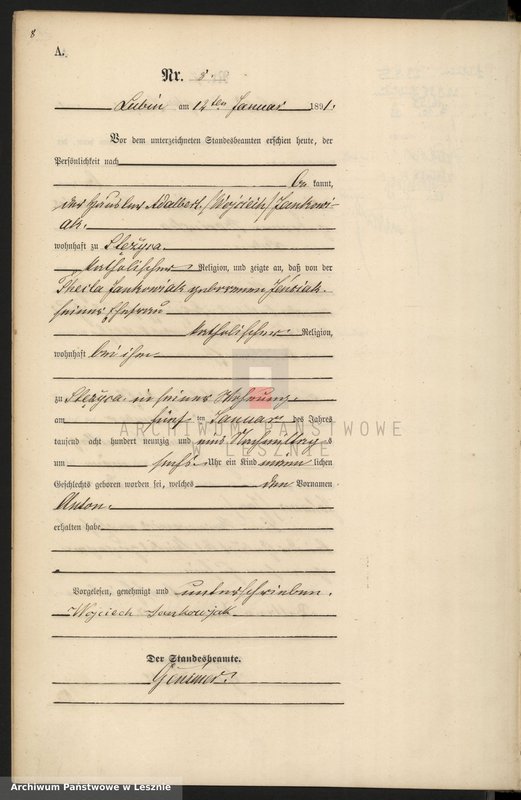 8
A.
Nr. 3.
Lubin am 12ten Januar 1891.
Vor dem unterzeichneten Standesbeamten erschien heute, der
Persönlichkeit nach
be kannt,
der Häusler Adalbert /Wojciech/ Jankowi-
ak.
wohnhaft zu
katholischer Religion, und zeigte an, daß von der
Thecla Jankowiak geborenen
seiner Ehefrau
katholischer Religion,
wohnhaft bei ihm
zu in seiner Wohnung
am fünf ten Januar des Jahres
tausend acht hundert neunzig und eins Nachmittags
um sechs Uhr ein Kind männ lichen
Geschlechts geboren worden sei, welches den Vornamen
Anton.
erhalten habe
Vorgelesen, genehmigt und unterschrieben.
Wojciech Jankowjak
Der Standesbeamte.
ARCHIWUM PAŃSTWOWE
W LESZNIE
Archiwum Państwowe w Lesznie